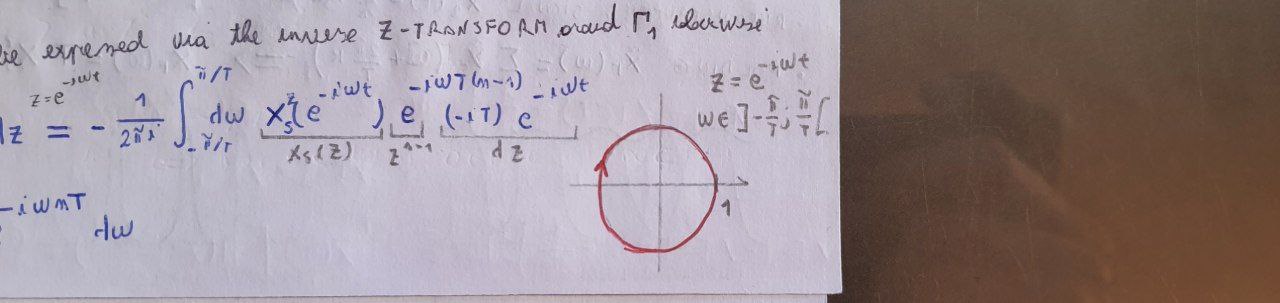 be expressed via the inverse Z-TRANSFORM around Γ₁ clockwise
z=e^{-iωt}
dz = - 1/(2π̃i) ∫_{-π̃/T}^{π̃/T} dω X_s^z(e^{-iωt}) e^{-iωT(n-1)} (-iT) e^{-iωt}
X_s(z) z^{n-1} dz
z = e^{-iωt}
ω∈]-π̃/T; π̃/T[
1
-iωnT dω